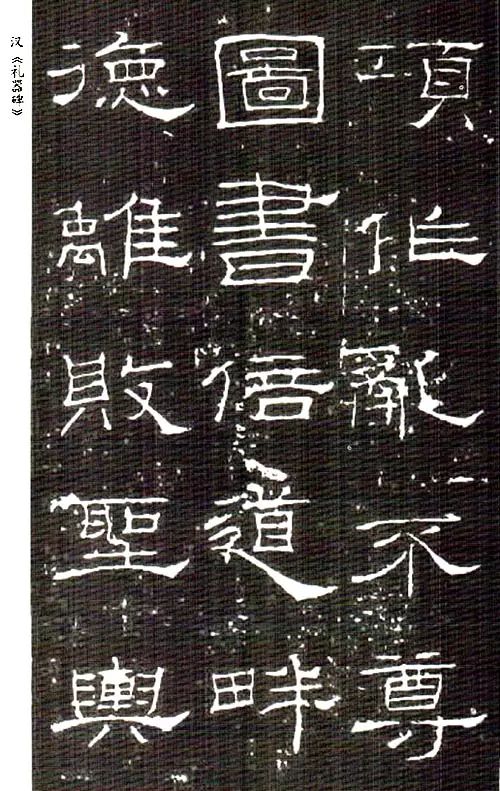 項作亂不尊
圖書倍道畔
德離敗聖輿
汉《礼器碑》